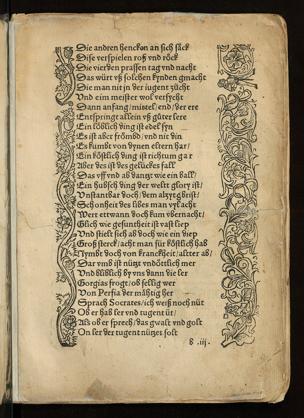 Die andren hencken an sich säck
Dise verspielen roß vnd röck
Die vierden prassen tag vnd nacht
Das würt vß solchen kynden gmacht
Die man nit jn der iugent zücht
Vnd ein meister wol versycht
Dann anfang / mittel / end / der ere
Entspringt allein vß güter lere
Ein löblich ding ist edel syn
Es ist aber frömbd / vnd nit din
Es kumbt von dynen eltern har /
Ein köstlich ding ist richtum gar
Aber des ist des gelückes fall
Das vff vnd ab dantzt wie ein ball /
Ein hubsch ding der welt glory ist /
Vnstantbar doch / dem alzyt gbrist /
Schonheit des libes man vyl acht
Wert ettwann doch kum vbernacht /
Glich wie gesuntheit ist vast liep
Vnd stielt sich ab doch wie ein diep
Groß sterck / acht man für köstlich hab
Nymbt doch von kranckheit / altter ab /
Dar vmb ist nützt vndöttlich mer
Vnd bliblich by vns dann die ler
Gorgias frogt / ob sellig wer
Von Persia der mähtig her
Sprach Socrates / ich weiß noch nüt
Ob er hab ler vnd tugent üt /
Als ob er sprech / das gwalt vnd golt
On ler der tugent nützet solt
b .iij.